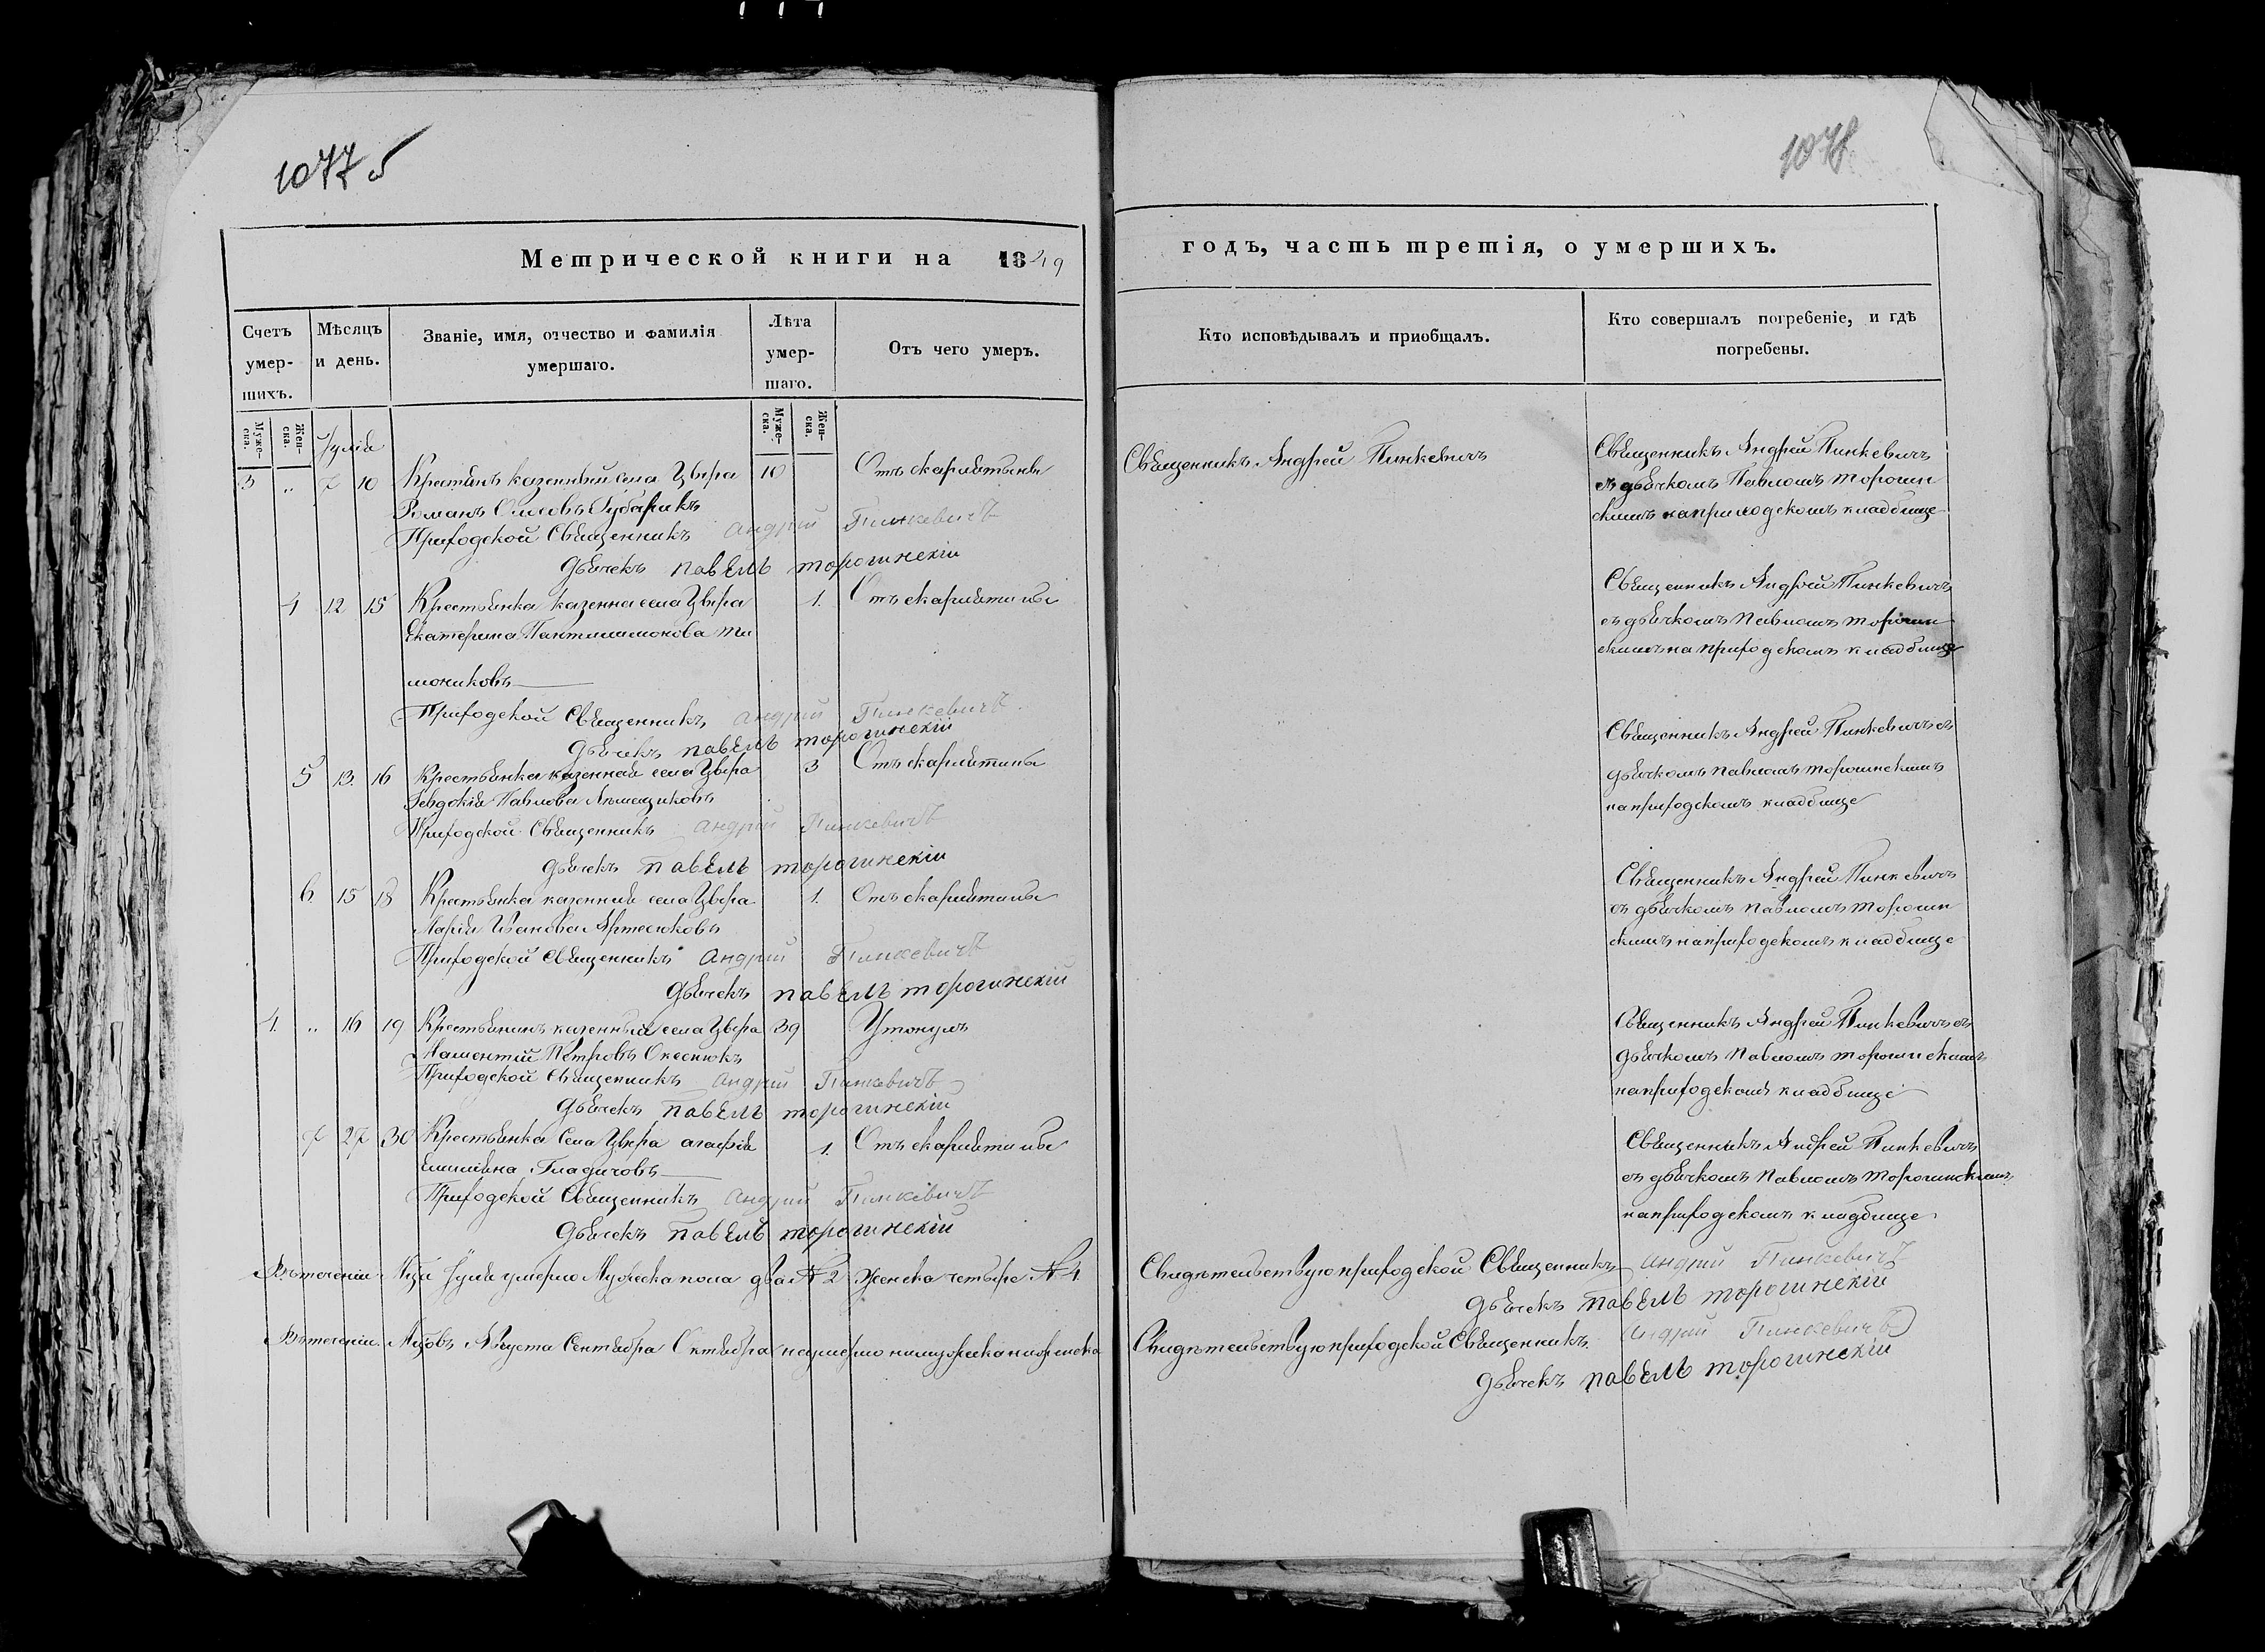 1077
1078
Метрической книги на 1849
годъ, часть третія, о умершихъ.
Счетъ умер-шихъ.
Мѣсяцъ и день.
Званіе, имя, отчество и фамилія умершаго.
Лѣта умер-шаго.
Отъ чего умеръ.
Кто исповѣдывалъ и приобщалъ.
Кто совершалъ погребеніе, и гдѣ погребены.
Муже-ска.
Жен-ска.
Муже-ска.
Жен-ска.
Іулія
3 „ 7 10 Крестьянъ казенный села Цвѣра 10 Отъ скарлятыны
Романъ
Приходской Священникъ Андрий Пинкевичъ
Дьячекъ ПавелъТорогинскій
Священникъ Андрей Пинкевичъ
Священникъ Андрей Пинкевичъ
съ дьячкомъ Павломъ Торогин
скимъ на приходскомъ кладбище
4 12 15 Крестьянка казенна села Цвѣра 1. Отъ скарлятины
Екатерина Пантилимонова Ти
мониковъ
Приходской Священникъ Андрий Пинкевичъ
Дьячекъ Павелъ Торогинскій
Священникъ Андрей Пинкевичъ
съ дьячкомъ Павломъ Торогин
скимъ на приходскомъ кладбище
5 13. 16 Крестьянка казенная села Цвѣра 3 Отъ скарлятины
Павлова
Приходской Священникъ Андрий Пинкевичъ
Дьячекъ Павелъ Торогинскій
Священникъ Андрей Пинкевичъ съ
дьячкомъ Павломъ Торогинскимъ
на приходскомъ кладбище
6 15 18 Крестьянка казенная села Цвѣра 1. Отъ скарлятины
Марія Иванова Артесюковъ
Приходской Священникъ Андрий Пинкевичъ
Дьячекъ Павелъ Торогинскій
Священникъ Андрей Пинкевичъ
съ дьячкомъ Павломъ Торогин
скимъ на приходскомъ кладбище
4. „ 16 19 Крестьянинъ казенный села Цвѣра 39 Утонулъ
Петровъ
Приходской Священникъ Андрий Пинкевичъ
Дьячекъ Павелъ Торогинскій
Священникъ Андрей Пинкевичъ съ
дьячкомъ Павломъ Торогинскимъ
на приходскомъ кладбище
7 27 30 Крестьянка села Цвѣра Агафія 1. Отъ скарлятины
Гладичовъ
Приходской Священникъ Андрий Пинкевичъ
Дьячекъ Павелъ Торогинскій
Священникъ Андрей Пинкевичъ
съ дьячкомъ Павломъ Торогинскимъ
на приходскомъ кладбище
Въ теченіи М-ца Іулія умерло Мужеска пола два № 2 Женска четыре № 4
Свидѣтельствую приходской Священникъ Андрий Пинкевичъ
Дьячекъ Павелъ Торогинскій
Въ теченіи М-цовъ Августа Сентября Октября неумерло ни мужска ни женска
Свидѣтельствую приходской Священникъ Андрий Пинкевичъ
Дьячекъ Павелъ Торогинскій